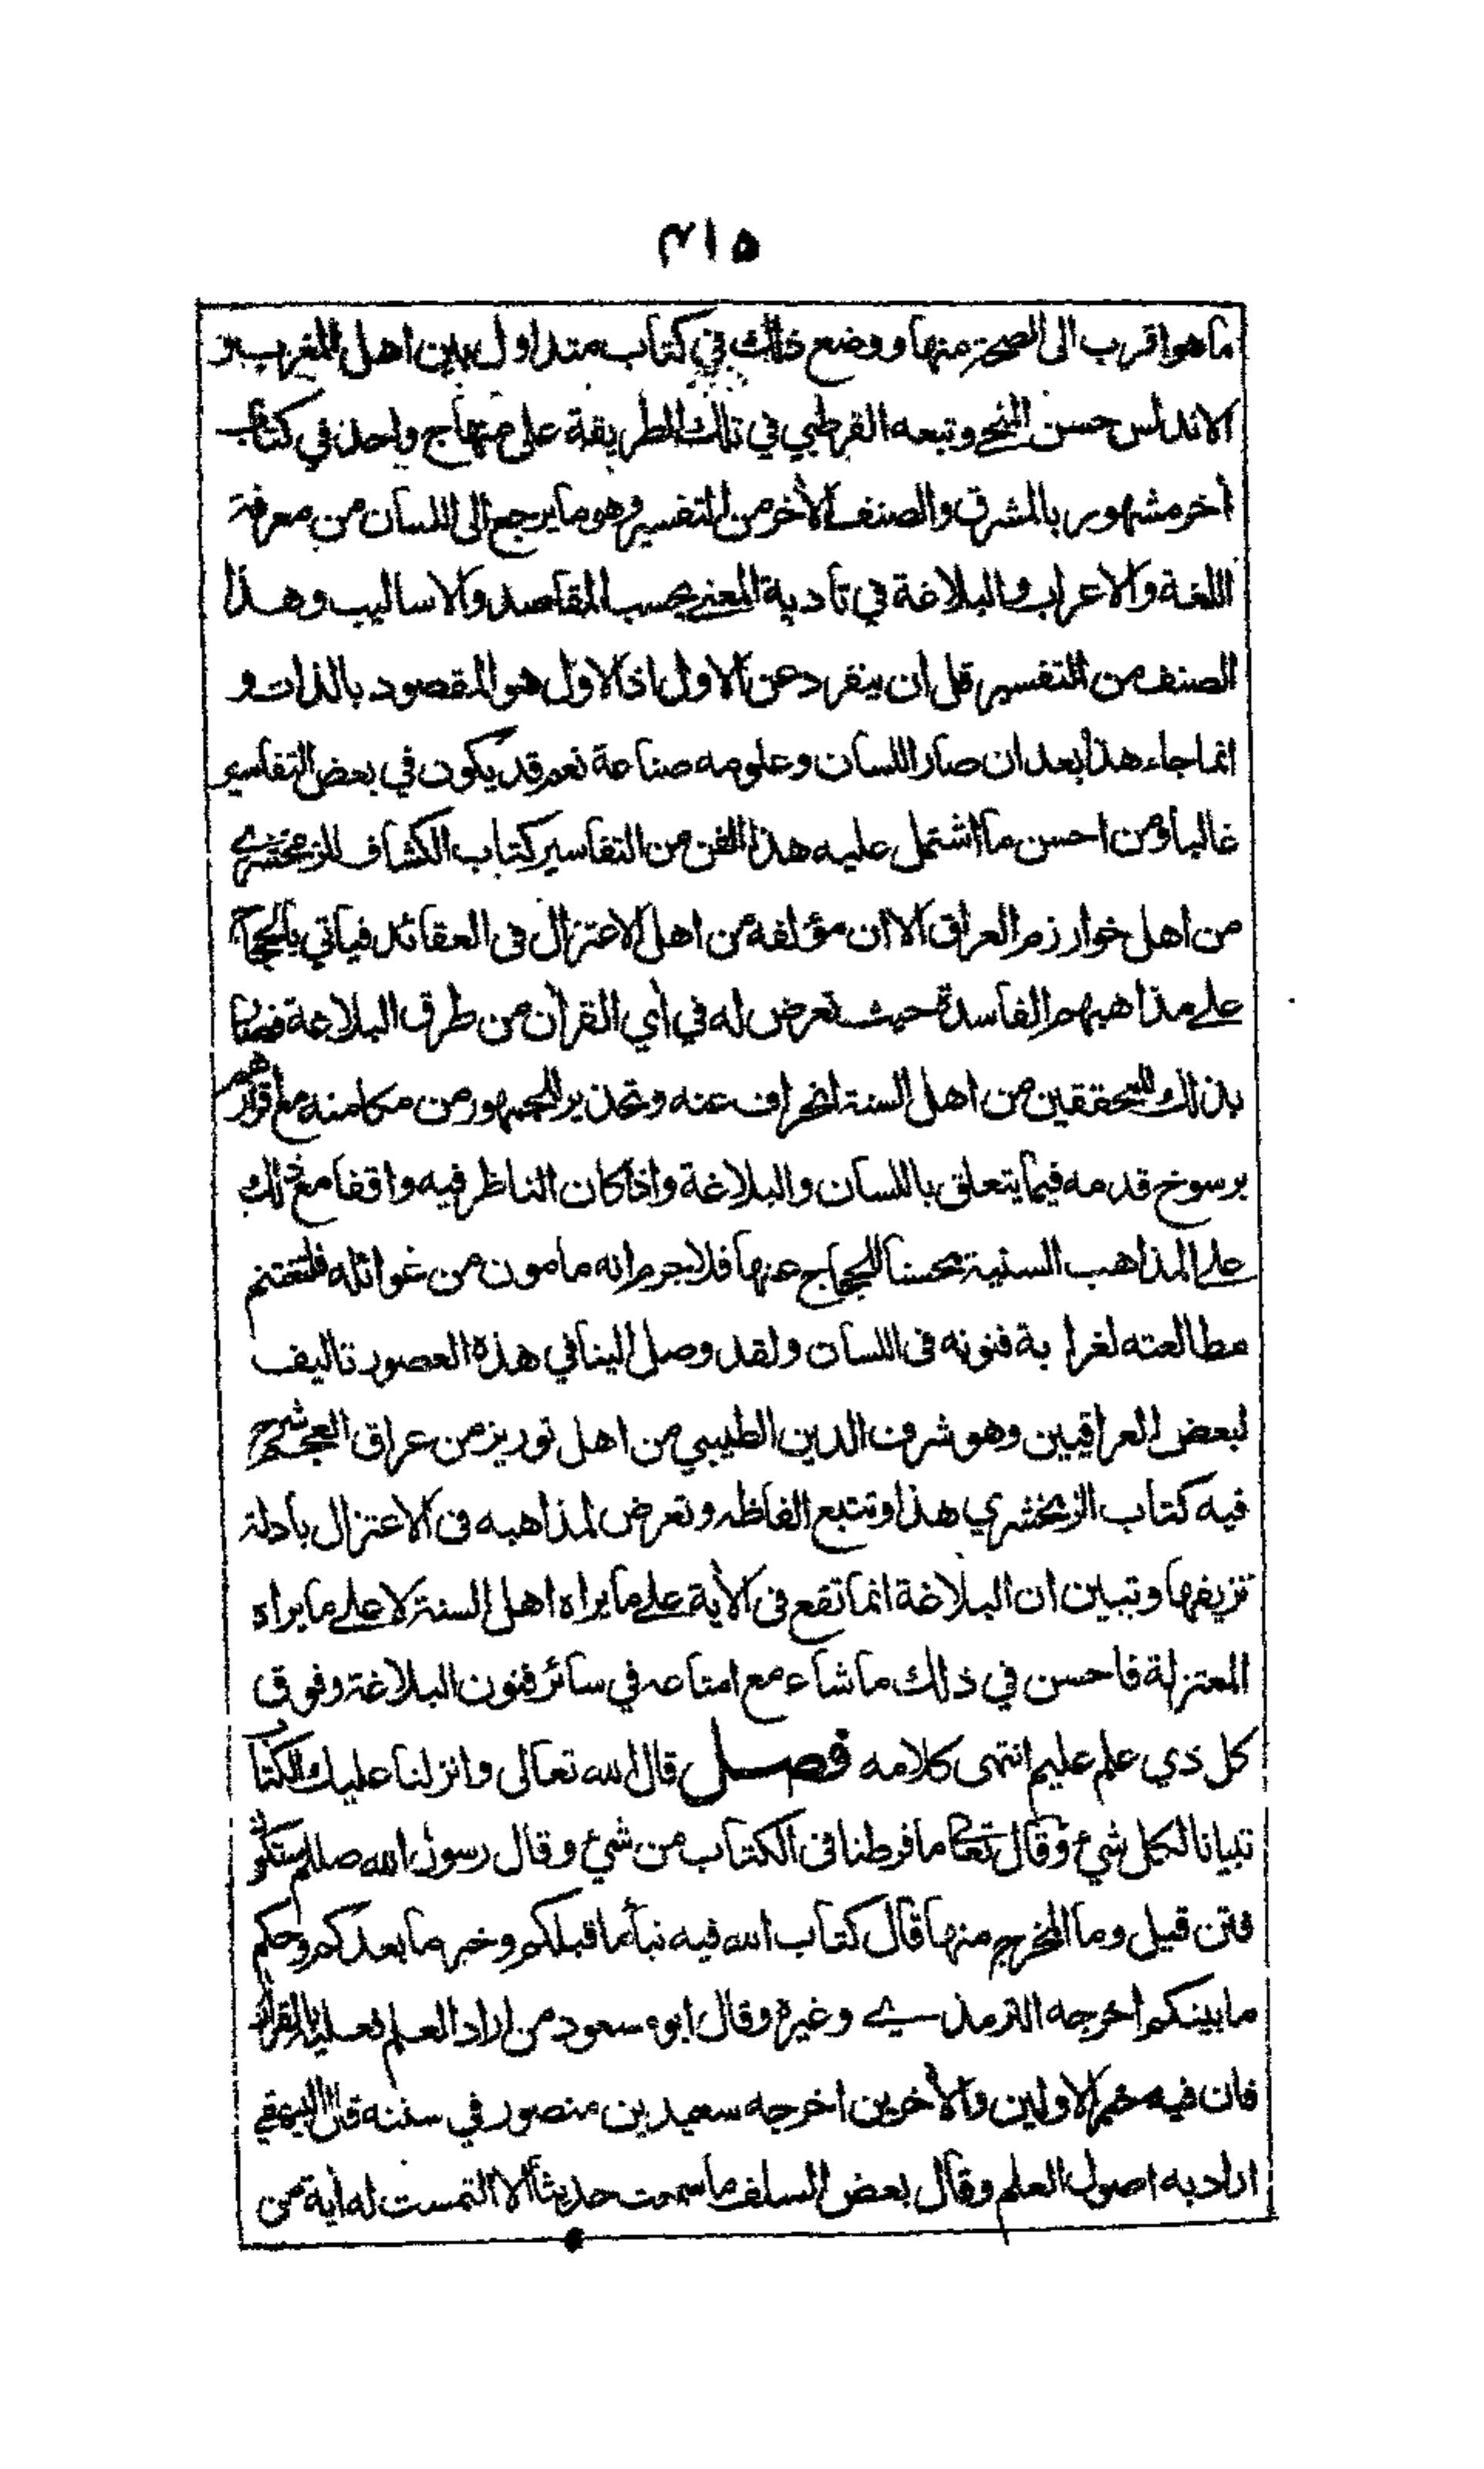 ٣١٥
ما هو اقرب الى الصحة منها ووضع ذلك في كتاب متداول بين اهل المغرب و
الاندلس حسن المنحى وتبعه القرطبي في تلك الطريقة على منهاج واحد في كتاب
اخر مشهور بالمشرق والصنف الأخر من التفسير وهو ما يرجع الى اللسان من معرفة
اللغة والاعراب والبلاغة في تادية المعنے بحسب المقاصد والاساليب وهذا
الصنف من التفسير قل ان ينفرد عن الاول اذ الاول هو المقصود بالذات و
انما جاء هذا بعد ان صار اللسان وعلومه صناعة نعم قد يكون في بعض التفاسير
غالبا ومن احسن ما اشتمل عليه هذا الفن من التفاسير كتاب الكشاف للزمخشرے
من اهل خوارزم العراق الا ان مؤلفه من اهل الاعتزال فى العقائد فيأتي بالحجاج
علے مذاهبهم الفاسدة حيث تعرض له في أي القرأن من طرق البلاغة فصار
بذلك للمحققين من اهل السنة انحراف عنه وتحذير للجمهور من مكامنه مع اقرارهم
برسوخ قدمه فيما يتعلق باللسان والبلاغة واذا كان الناظر فيه واقفا مع ذلك
علے المذاهب السنية محسنا للحجاج عنها فلا جرم انه مامون من غوائله فلتغتنم
مطالعته لغرابة فنونه فى اللسان ولقد وصل الينا في هذه العصور تاليف
لبعض العراقيين وهو شرف الدين الطيبي من اهل توريز من عراق العجم شرح
فيه كتاب الزمخشري هذا وتتبع الفاظه وتعرض لمذاهبه فى الاعتزال بأدلة
تزيفها وتبين ان البلاغة انما تقع فى الأية علے ما يراه اهل السنة لا علے ما يراه
المعتزلة فاحسن في ذلك ما شاء مع امتاعه في سائر فنون البلاغة وفوق
كل ذي علم عليم انتهى كلامه فصل قال الله تعالى وانزلنا عليك الكتاب
تبيانا لكل شئ وقال تعا ما فرطنا فى الكتاب من شئ وقال رسول الله صللم ستكون
فتن قيل وما المخرج منها قال كتاب الله فيه نبأ ما قبلكم وخبر ما بعدكم وحكم
ما بينكم اخرجه الترمذے وغيره وقال ابو مسعود من اراد العلم فعليه بالقرأن
فان فيه خبر الاولين والأخرين اخرجه سعيد بن منصور في سننه قال البيهقي
اراد به اصول العلم وقال بعض السلف ما سمعت حديثا الا التمست له أية من